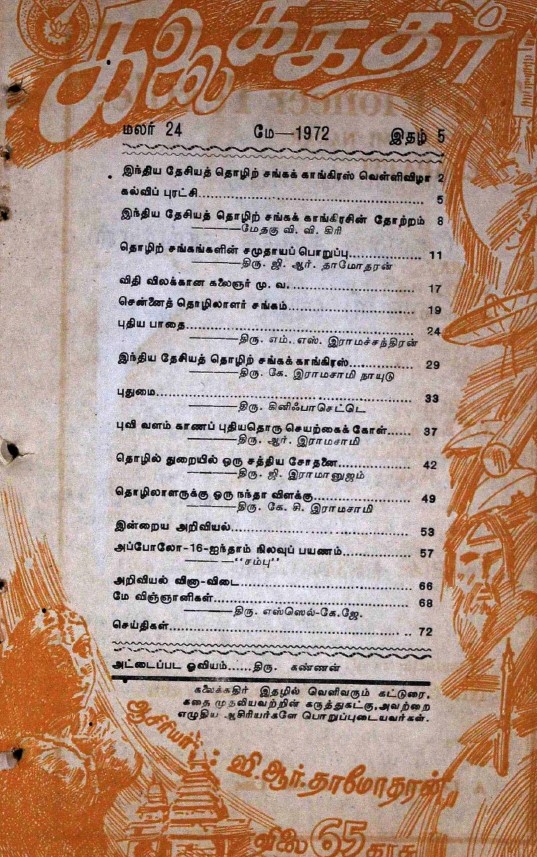 கலைக்கதிர்
மலர் 24 மே—1972 இதழ் 5
இந்திய தேசியத் தொழிற் சங்கக் காங்கிரஸ் வெள்ளிவிழா 2
கல்விப் புரட்சி 5
இந்திய தேசியத் தொழிற் சங்கக் காங்கிரசின் தோற்றம் 8
———மேதகு வி. வி. கிரி
தொழிற் சங்கங்களின் சமுதாயப் பொறுப்பு 11
———திரு. ஜி. ஆர். தாமோதரன்
விதி விலக்கான கலைஞர் மு. வ. 17
சென்னைத் தொழிலாளர் சங்கம் 19
புதிய பாதை 24
———திரு. எம். எஸ். இராமச்சந்திரன்
இந்திய தேசியத் தொழிற் சங்கக் காங்கிரஸ் 29
———திரு. கே. இராமசாமி நாயுடு
புதுமை 33
———திரு. கினிஃபாசெட்டெ
புவி வளம் காணப் புதியதொரு செயற்கைக் கோள் 37
———திரு. ஆர். இராமசாமி
தொழில் துறையில் ஒரு சத்திய சோதனை 42
———திரு. ஜி. இராமானுஜம்
தொழிலாளருக்கு ஒரு நந்தா விளக்கு 49
———திரு. கே. சி. இராமசாமி
இன்றைய அறிவியல் 53
அப்போலோ-16-ஐந்தாம் நிலவுப் பயணம் 57
———"சம்பு"
அறிவியல் வினா-விடை 66
மே விஞ்ஞானிகள் 68
———திரு. எஸ்ஸெல்-கே.ஜே.
செய்திகள் 72
அட்டைப்பட ஓவியம்......திரு. கண்ணன்
கலைக்கதிர் இதழில் வெளிவரும் கட்டுரை,
கதை முதலியவற்றின் கருத்துகட்கு, அவற்றை
எழுதிய ஆசிரியர்களே பொறுப்புடையவர்கள்.
ஆசிரியர் : வி. ஆர். தாமோதரன்
விலை 65 காசு